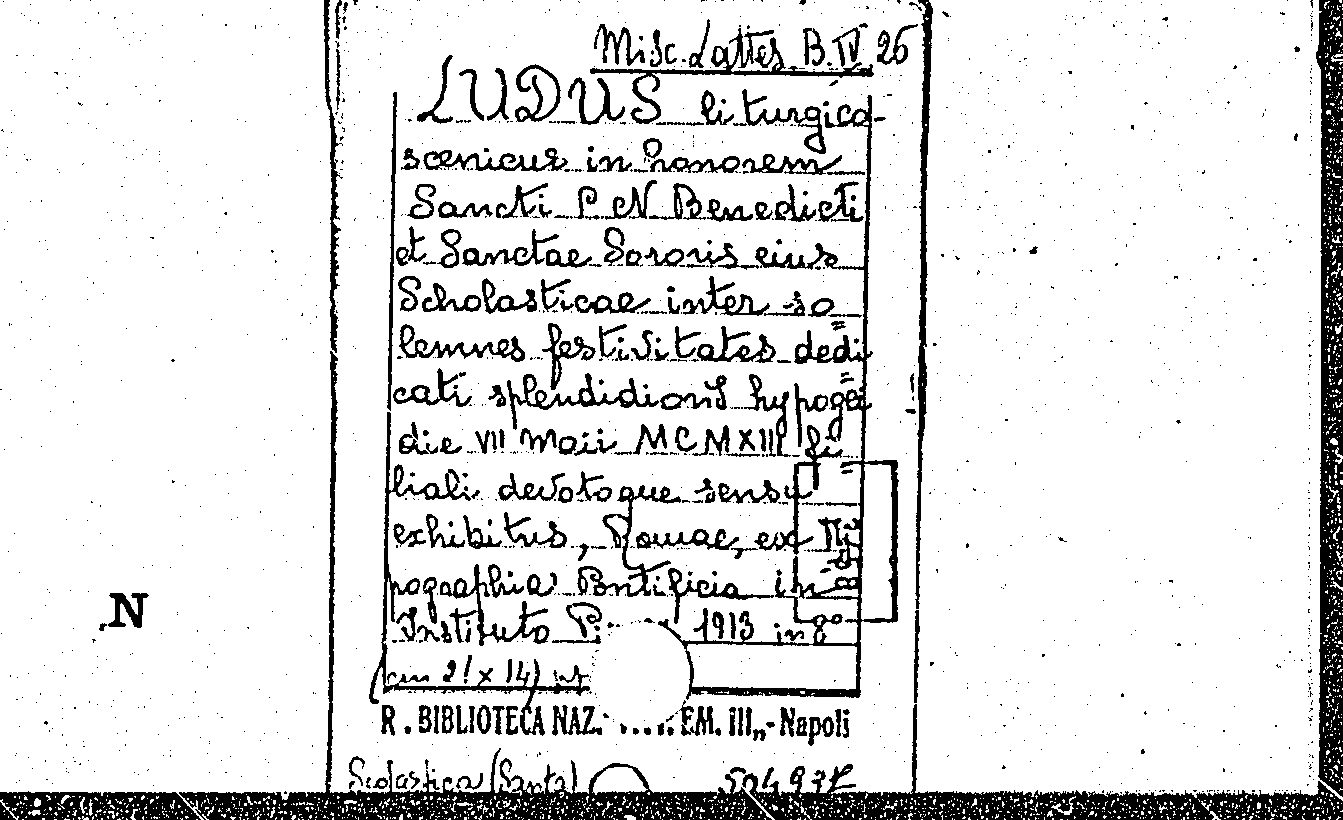 Misc. Lattes B. IV 26
LUDUS liturgico-
scenicus in honorem
Sancti P. N. Benedicti
et Sanctae Sororis eius
Scholasticae inter so=
lemnes festivitates dedi=
cati splendidioris hypogei
die VII Maii MCMXIII fi=
liali devotoque sensu
exhibitus, Romae, ex Ti=
pographia Pontificia in
Instituto 1913 in 8°
(cm 21 x 14)
R. BIBLIOTECA NAZ. EM. III„-Napoli
Scolastica (Santa)
N